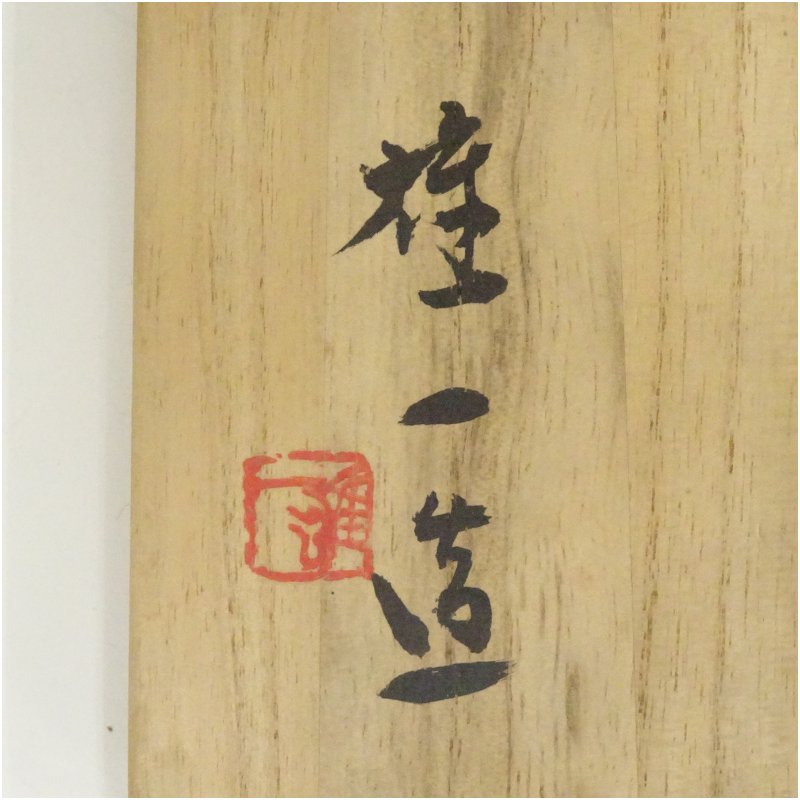 雄一造